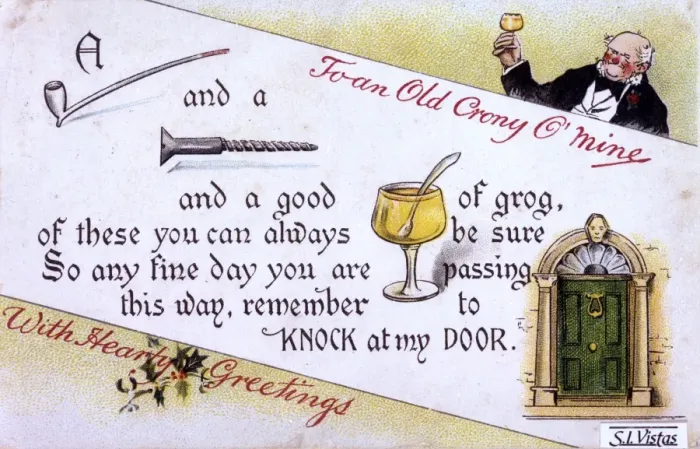 To an Old Crony O' mine
A
and a
and a good of grog,
of these you can always be sure
So any fine day you are passing
this way, remember to
KNOCK at my DOOR.
With Hearty Greetings
S.I.Vistas